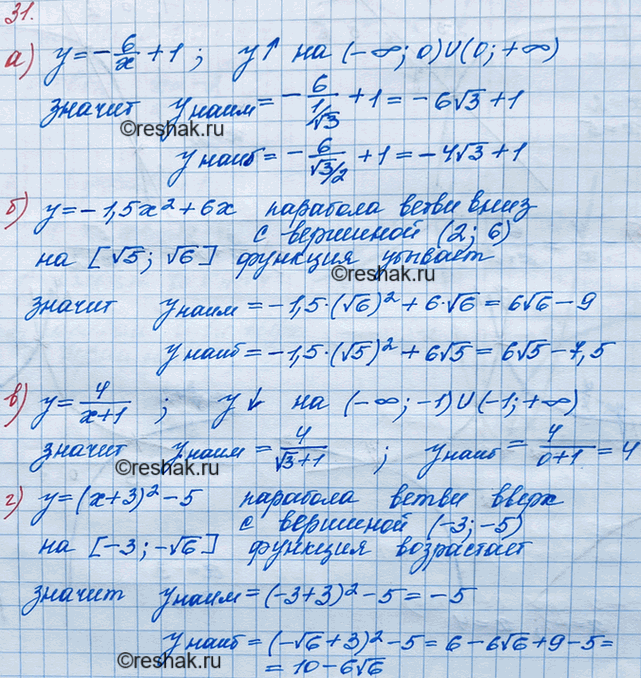 31.
а) y = -6/x + 1 ; y↑ на (-∞; 0)∪(0; +∞)
значит y наим = -6/(1/√3) + 1 = -6√3 + 1
©reshak.ru
y наиб = -6/(√3/2) + 1 = -4√3 + 1
б) y = -1,5x² + 6x парабола ветви вниз
с вершиной (2; 6)
на [√5; √6] функция убывает
©reshak.ru
значит y наим = -1,5·(√6)² + 6·√6 = 6√6 - 9
y наиб = -1,5·(√5)² + 6√5 = 6√5 - 7,5
в) y = 4/(x+1) ; y↓ на (-∞; -1)∪(-1; +∞)
значит y наим = 4/(√3+1) ; y наиб = 4/(0+1) = 4
©reshak.ru
г) y = (x+3)² - 5 парабола ветви вверх
с вершиной (-3; -5)
на [-3; -√6] функция возрастает
значит y наим = (-3+3)² - 5 = -5
y наиб = (-√6+3)² - 5 = 6 - 6√6 + 9 - 5 =
©reshak.ru
= 10 - 6√6